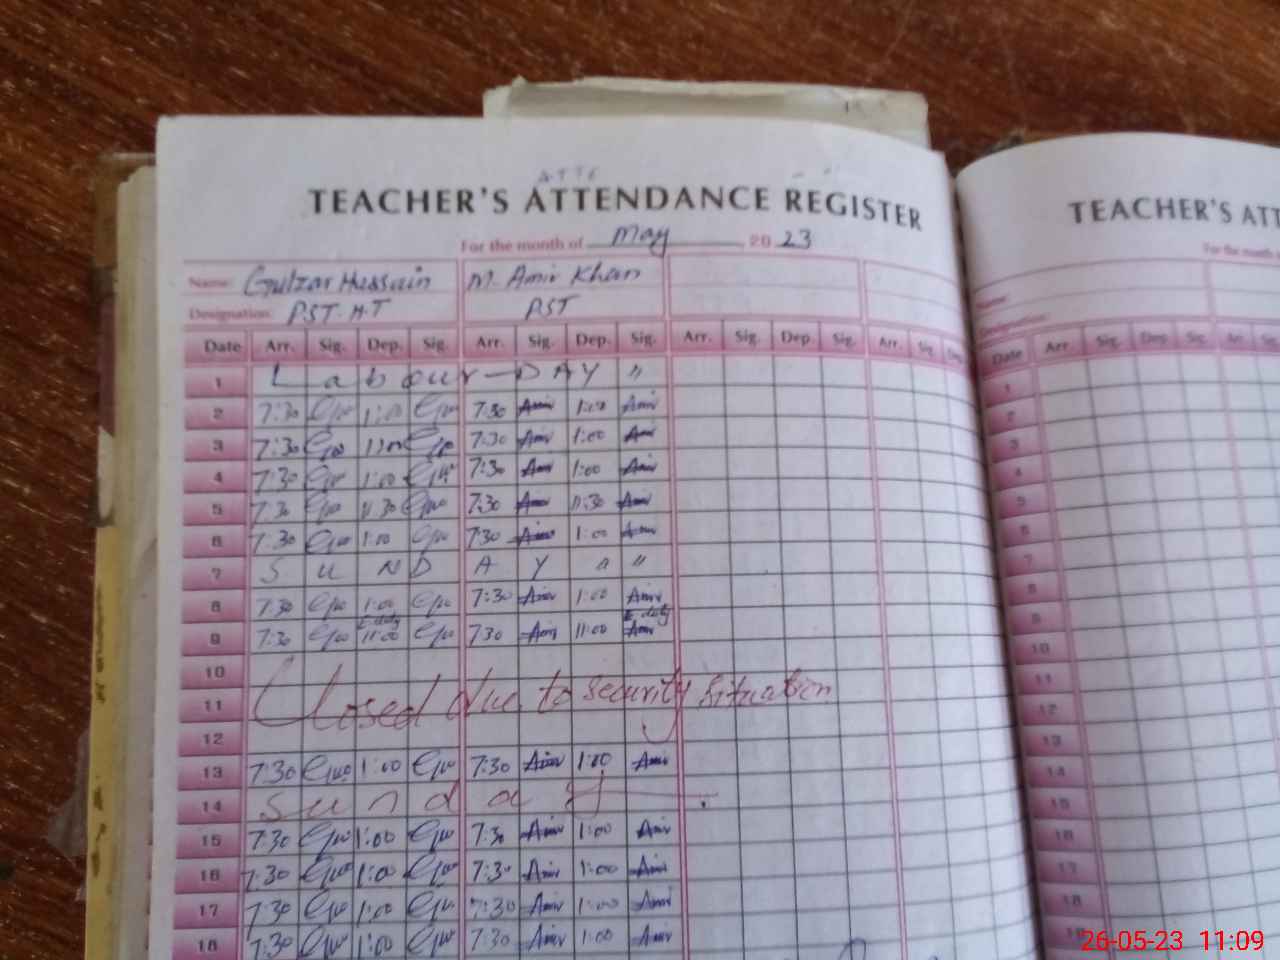 TEACHER'S ATTENDANCE REGISTER
For the month of May 2023
Name: Gulzar Hussain M. Amir Khan
Designation: PST.H.T PST
Date Arr. Sig. Dep. Sig. Arr. Sig. Dep. Sig. Arr. Sig. Dep. Sig. Arr. Sig. Dep.
1 Labour DAY "
2 7:30 1:00 7:30 Amir 1:00 Amir
3 7:30 1:00 7:30 Amir 1:00 Amir
4 7:30 1:00 7:30 Amir 1:00 Amir
5 7:30 11:30 7:30 Amir 11:30 Amir
6 7:30 1:00 7:30 Amir 1:00 Amir
7 SUNDAY " "
8 7:30 1:00 7:30 Amir 1:00 Amir
9 7:30 E.duty 11:00 7:30 Amir 11:00 E.duty Amir
10
11 Closed due to security situation
12
13 7:30 1:00 7:30 Amir 1:00 Amir
14 Sunday
15 7:30 1:00 7:30 Amir 1:00 Amir
16 7:30 1:00 7:30 Amir 1:00 Amir
17 7:30 1:00 7:30 Amir 1:00 Amir
18 7:30 1:00 7:30 Amir 1:00 Amir
TEACHER'S ATT
For the month
Name:
Designation:
Date Arr. Sig. Dep. Sig. Arr. Sig.
1
2
3
4
5
6
7
8
9
10
11
12
13
14
15
16
17
18
19
26-05-23 11:09